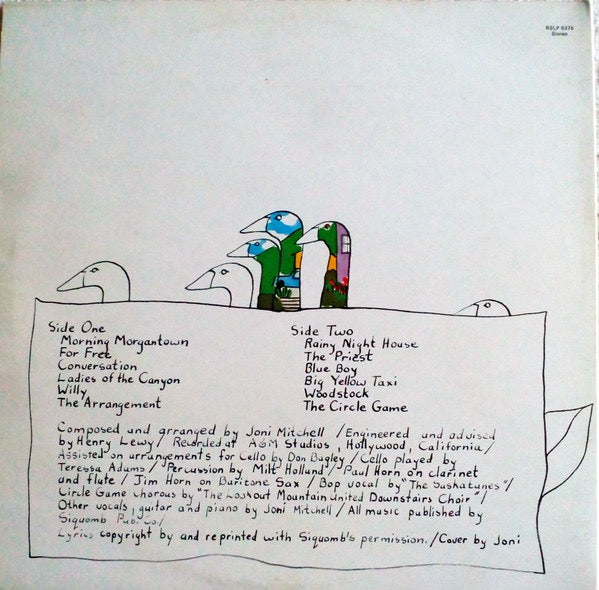 RSLP 6376
Stereo
Side One
Morning Morgantown
For Free
Conversation
Ladies of the Canyon
Willy
The Arrangement
Side Two
Rainy Night House
The Priest
Blue Boy
Big Yellow Taxi
Woodstock
The Circle Game
Composed and arranged by Joni Mitchell / Engineered and advised
by Henry Lewy / Recorded at A&M Studios, Hollywood, California /
Assisted on arrangements for Cello by Don Bagley / Cello played by
Teressa Adams / Percussion by Milt Holland / Paul Horn on clarinet
and flute / Jim Horn on Baritone Sax / Bop vocal by "The Saskatunes" /
Circle Game chorous by "The Lookout Mountain United Downstairs Choir" /
Other vocals, guitar and piano by Joni Mitchell / All music published by
Siquomb Pub. Co /
Lyrics copyright by and reprinted with Siquomb's permission. / Cover by Joni